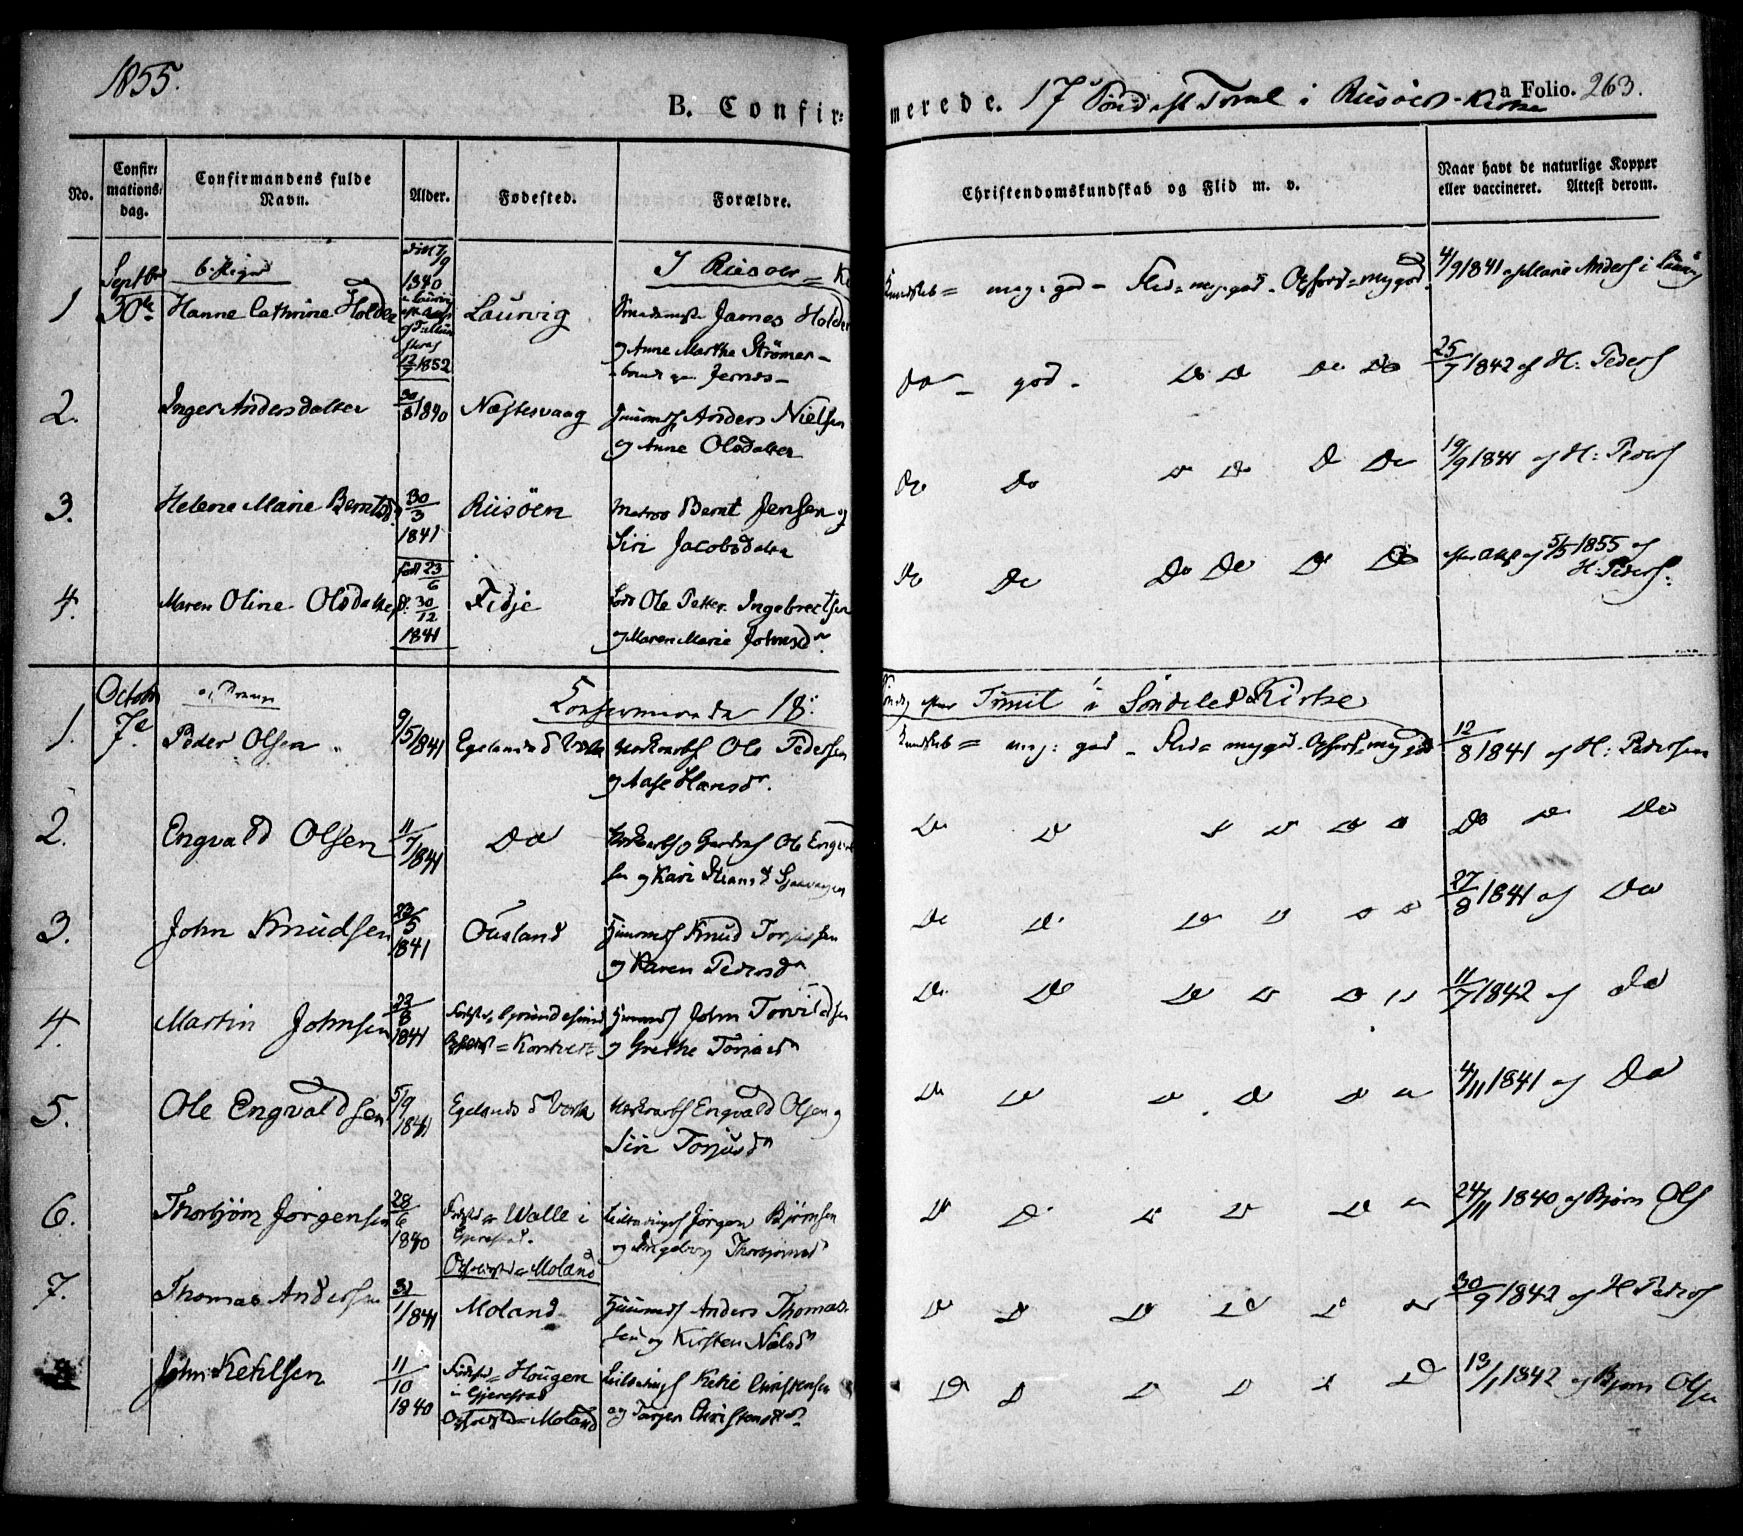 1855.
B. Confir-
merede. 17 Sønd. eft Trinit i Riisöers Kirke
a Folio. 263.
No.
Confir-
mations-
dag.
Confirmandens fulde
Navn.
Alder.
Fødested.
Forældre.
Christendomskundskab og Flid m. v.
Naar havt de naturlige Kopper
eller vaccineret. Attest derom.
b. Piger
I Riisöer
Septbr
1 30te Hanne Cathrine Holder
1840
12/7 1852
Laurvig
James Holder
og Anne Marthe Strömer
Kundskab = meg: god - Flid = meg. god - Opførs = meg god
4/9 1841 af Marie Anders i Laurvig
2. Inger Andersdatter 30/8 1840 Næstesvaag Huusmd Anders Nielsen
og Anne Olsdatter
Do - god - Do Do Do Do 25/7 1842 af H: Peders
3. Helene Marie Berntsd 30/3 1841 Riisöen Matros Bernt Jensen og
Siri Jacobsdatter
Do Do Do Do Do Do 19/9 1841 af H: Peders
4. Maren Oline Olsdatter
født 23/6
30/12
1841
Fidje
Lods Ole Petter Ingebrectsen
og Maren Marie Johnsd
Do Do Do Do Do Do efter Att af 5/5 1855 af
H: Peders:
Confirmerede 18:
Søndag efter Trinit i Söndeleds Kirke
October
a. Drenge
1. 7de Peder Olsen 9/5 1841 Egelands Værk Værksarb Ole Pedersen
og Aase Hansd.
Kundskab = meg: god - Flid = meg god - Opførs = meg god 12/8 1841 af H: Pedersen
2. Engvald Olsen 11/7 1841 Do
og Kari
Do Do Do Do Do Do Do Do Do
3. John Knudsen 23/5 1841 Öusland Huusmd Knud Torjusen
og Karen Pedersd
Do Do Do Do Do Do 27/8 1841 af Do
4. Martin Johnsen 23/8 1841
Huusmd John Torvildsen
og Grethe Torjusd
Do Do Do Do Do 11/7 1842 af Do
5. Ole Engvaldsen 5/9 1841 Egelands Værk Værksarb Engvald Olsen og
Siri Torjusd
Do Do Do Do Do Do 4/11 1841 af Do
6. Thorbjörn Jörgensen 28/6 1840
Födested er Walle i
Gjerestad.
Opholdsted = Moland
Leilændings Jörgen Björnsen
og Ingeborg Thorbjörnsd
Do Do Do Do Do Do 24/11 1840 af Björn Ols
7. Thomas Andersen 1841 Moland Huusmd Anders Thomas-
sen og Kirsten Nielsd
Do Do Do Do Do Do 30/9 1842 af H Peders
8 John Ketilsen 11/10 1840
Födested = Hougen
i Gjerestad
Opholdsted = Moland
Leilændings Ketil Christensen
og Torjer Christensd
Do Do Do Do Do Do 13/1 1842 af Bjørn Olsen